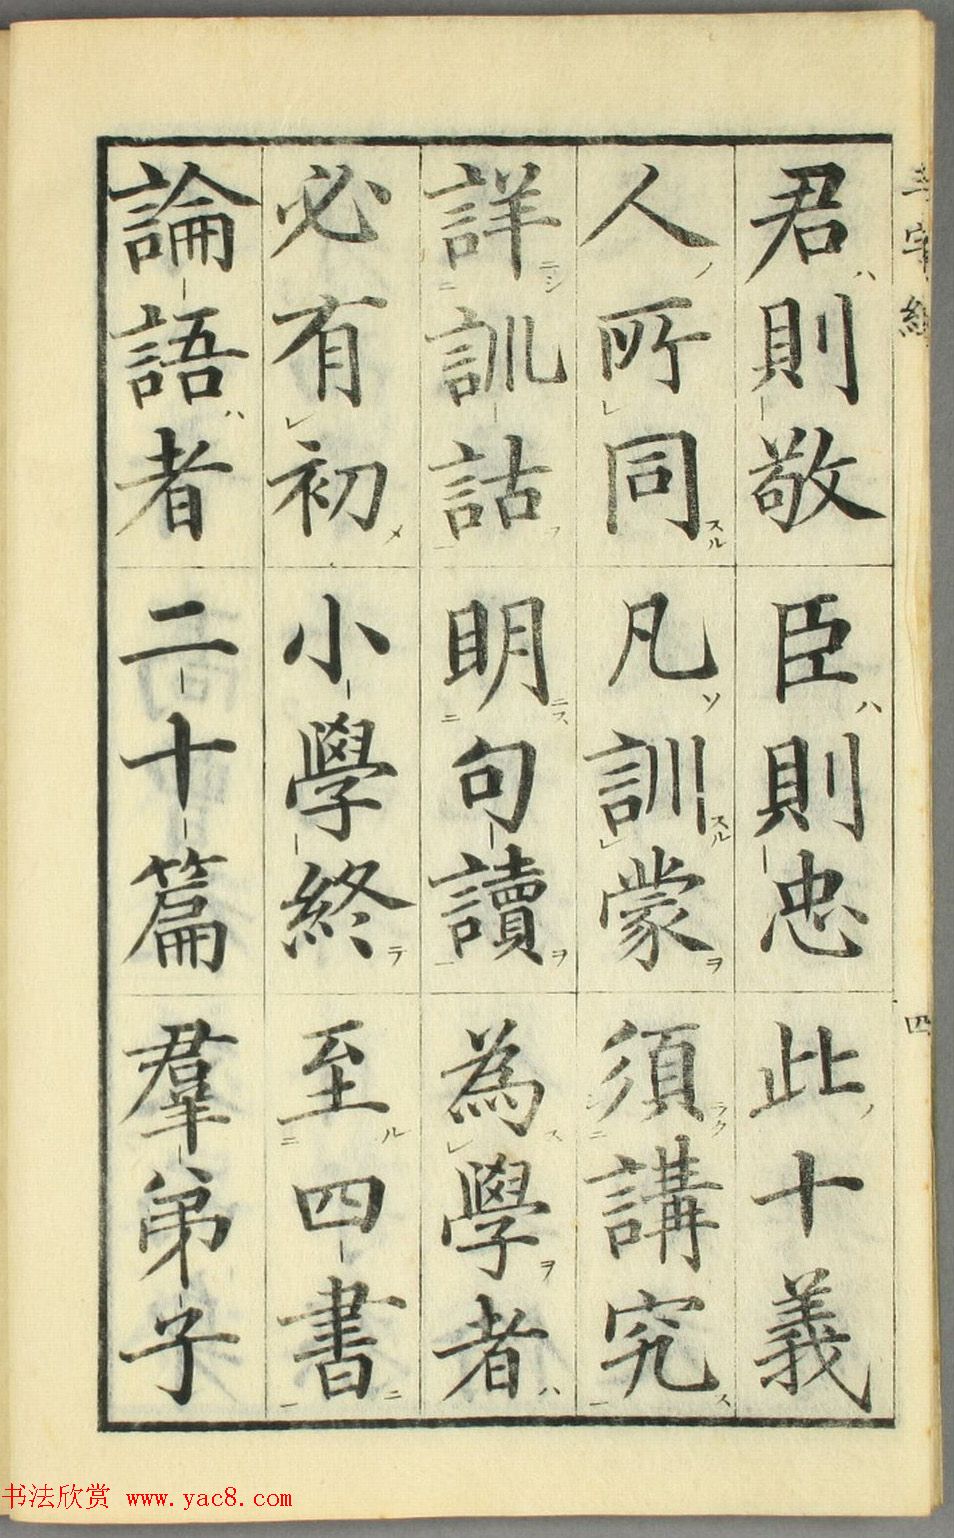 君則敬臣則忠此十義
人所同凡訓蒙須講究
詳訓詁明句讀為學者
必有初小學終至四書
論語者二十篇羣弟子
四
书法欣赏 www.yac8.com